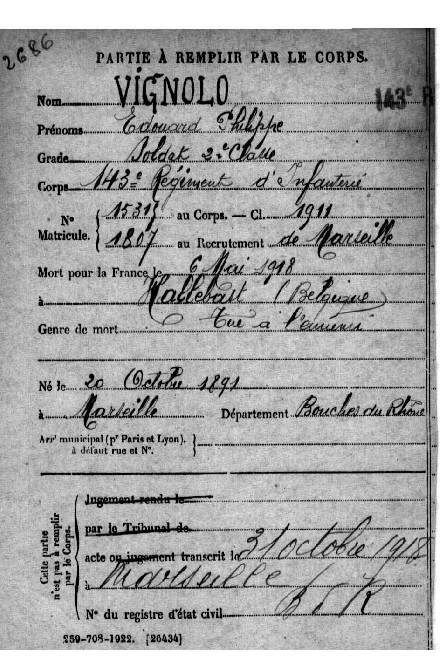 2686
PARTIE À REMPLIR PAR LE CORPS.
Nom VIGNOLO
143e R
Prénoms Edouard Philippe
Grade Soldat 2e Classe
Corps 143e Régiment d'Infanterie
No Matricule. { 15315 au Corps. — Cl. 1911
1807 au Recrutement de Marseille
Mort pour la France le 6 Mai 1918
à Hallebast (Belgique)
Genre de mort Tué à l'ennemi
Né le 20 Octobre 1891
à Marseille Département Bouches du Rhône
Arrt municipal (pr Paris et Lyon), à défaut rue et No.
Cette partie n'est pas à remplir par le Corps.
Jugement rendu le
par le Tribunal de
acte ou jugement transcrit le 31 octobre 1918
à Marseille
B d R
No du registre d'état civil
259-708-1922. [26434]